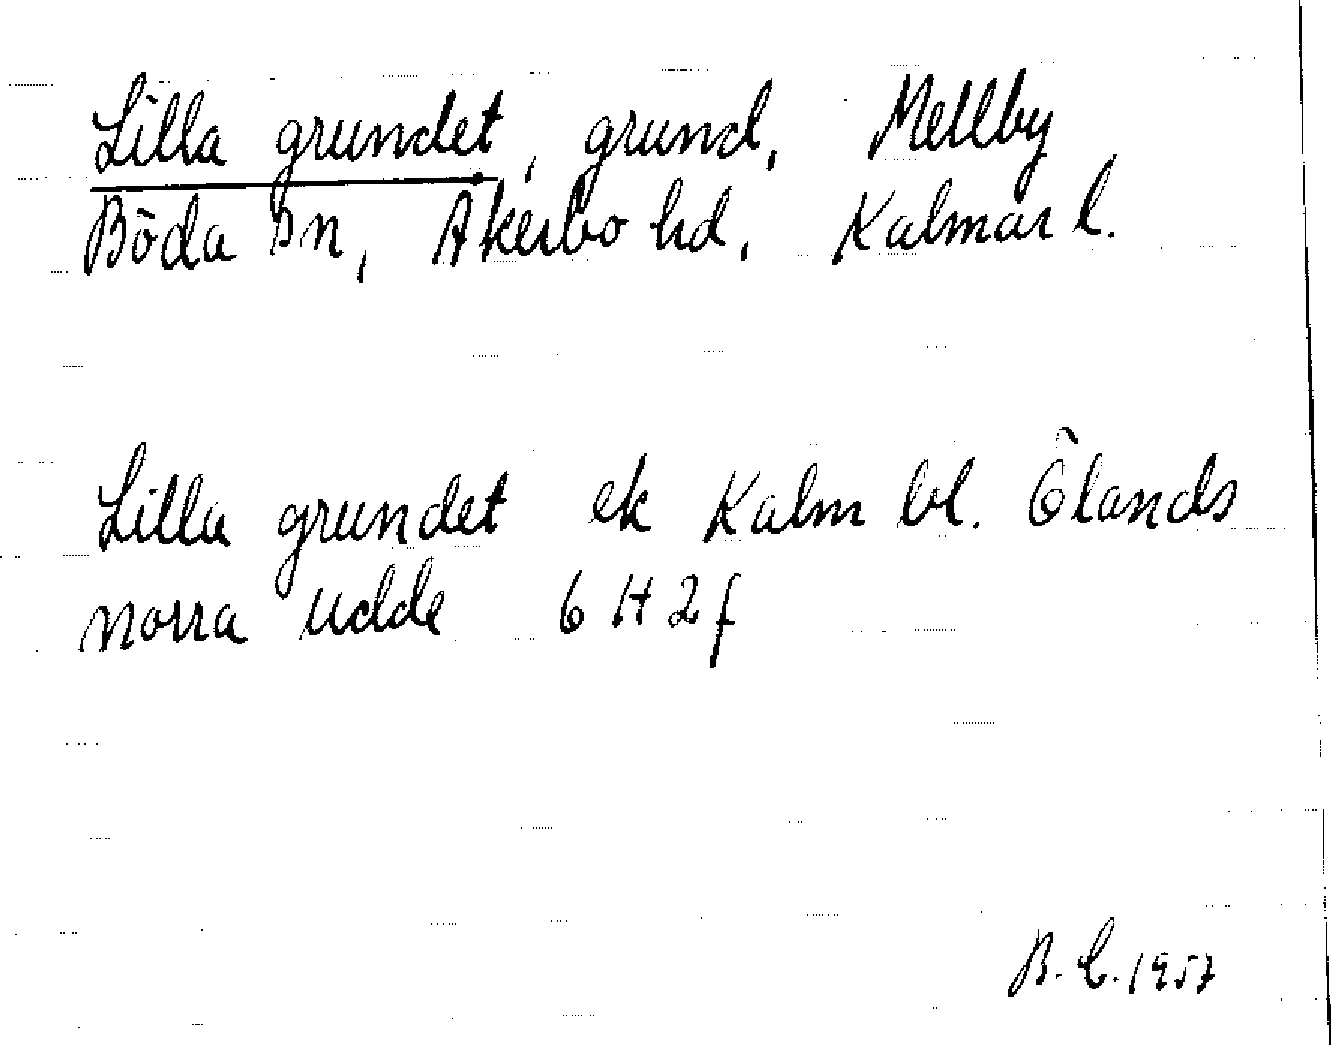 Lilla grundet, grund, Mellby
Böda sn, Åkerbo hd, Kalmar l.
Lilla grundet ek Kalm bl. Ölands
norra udde 6 H 2 f
B. C. 1957